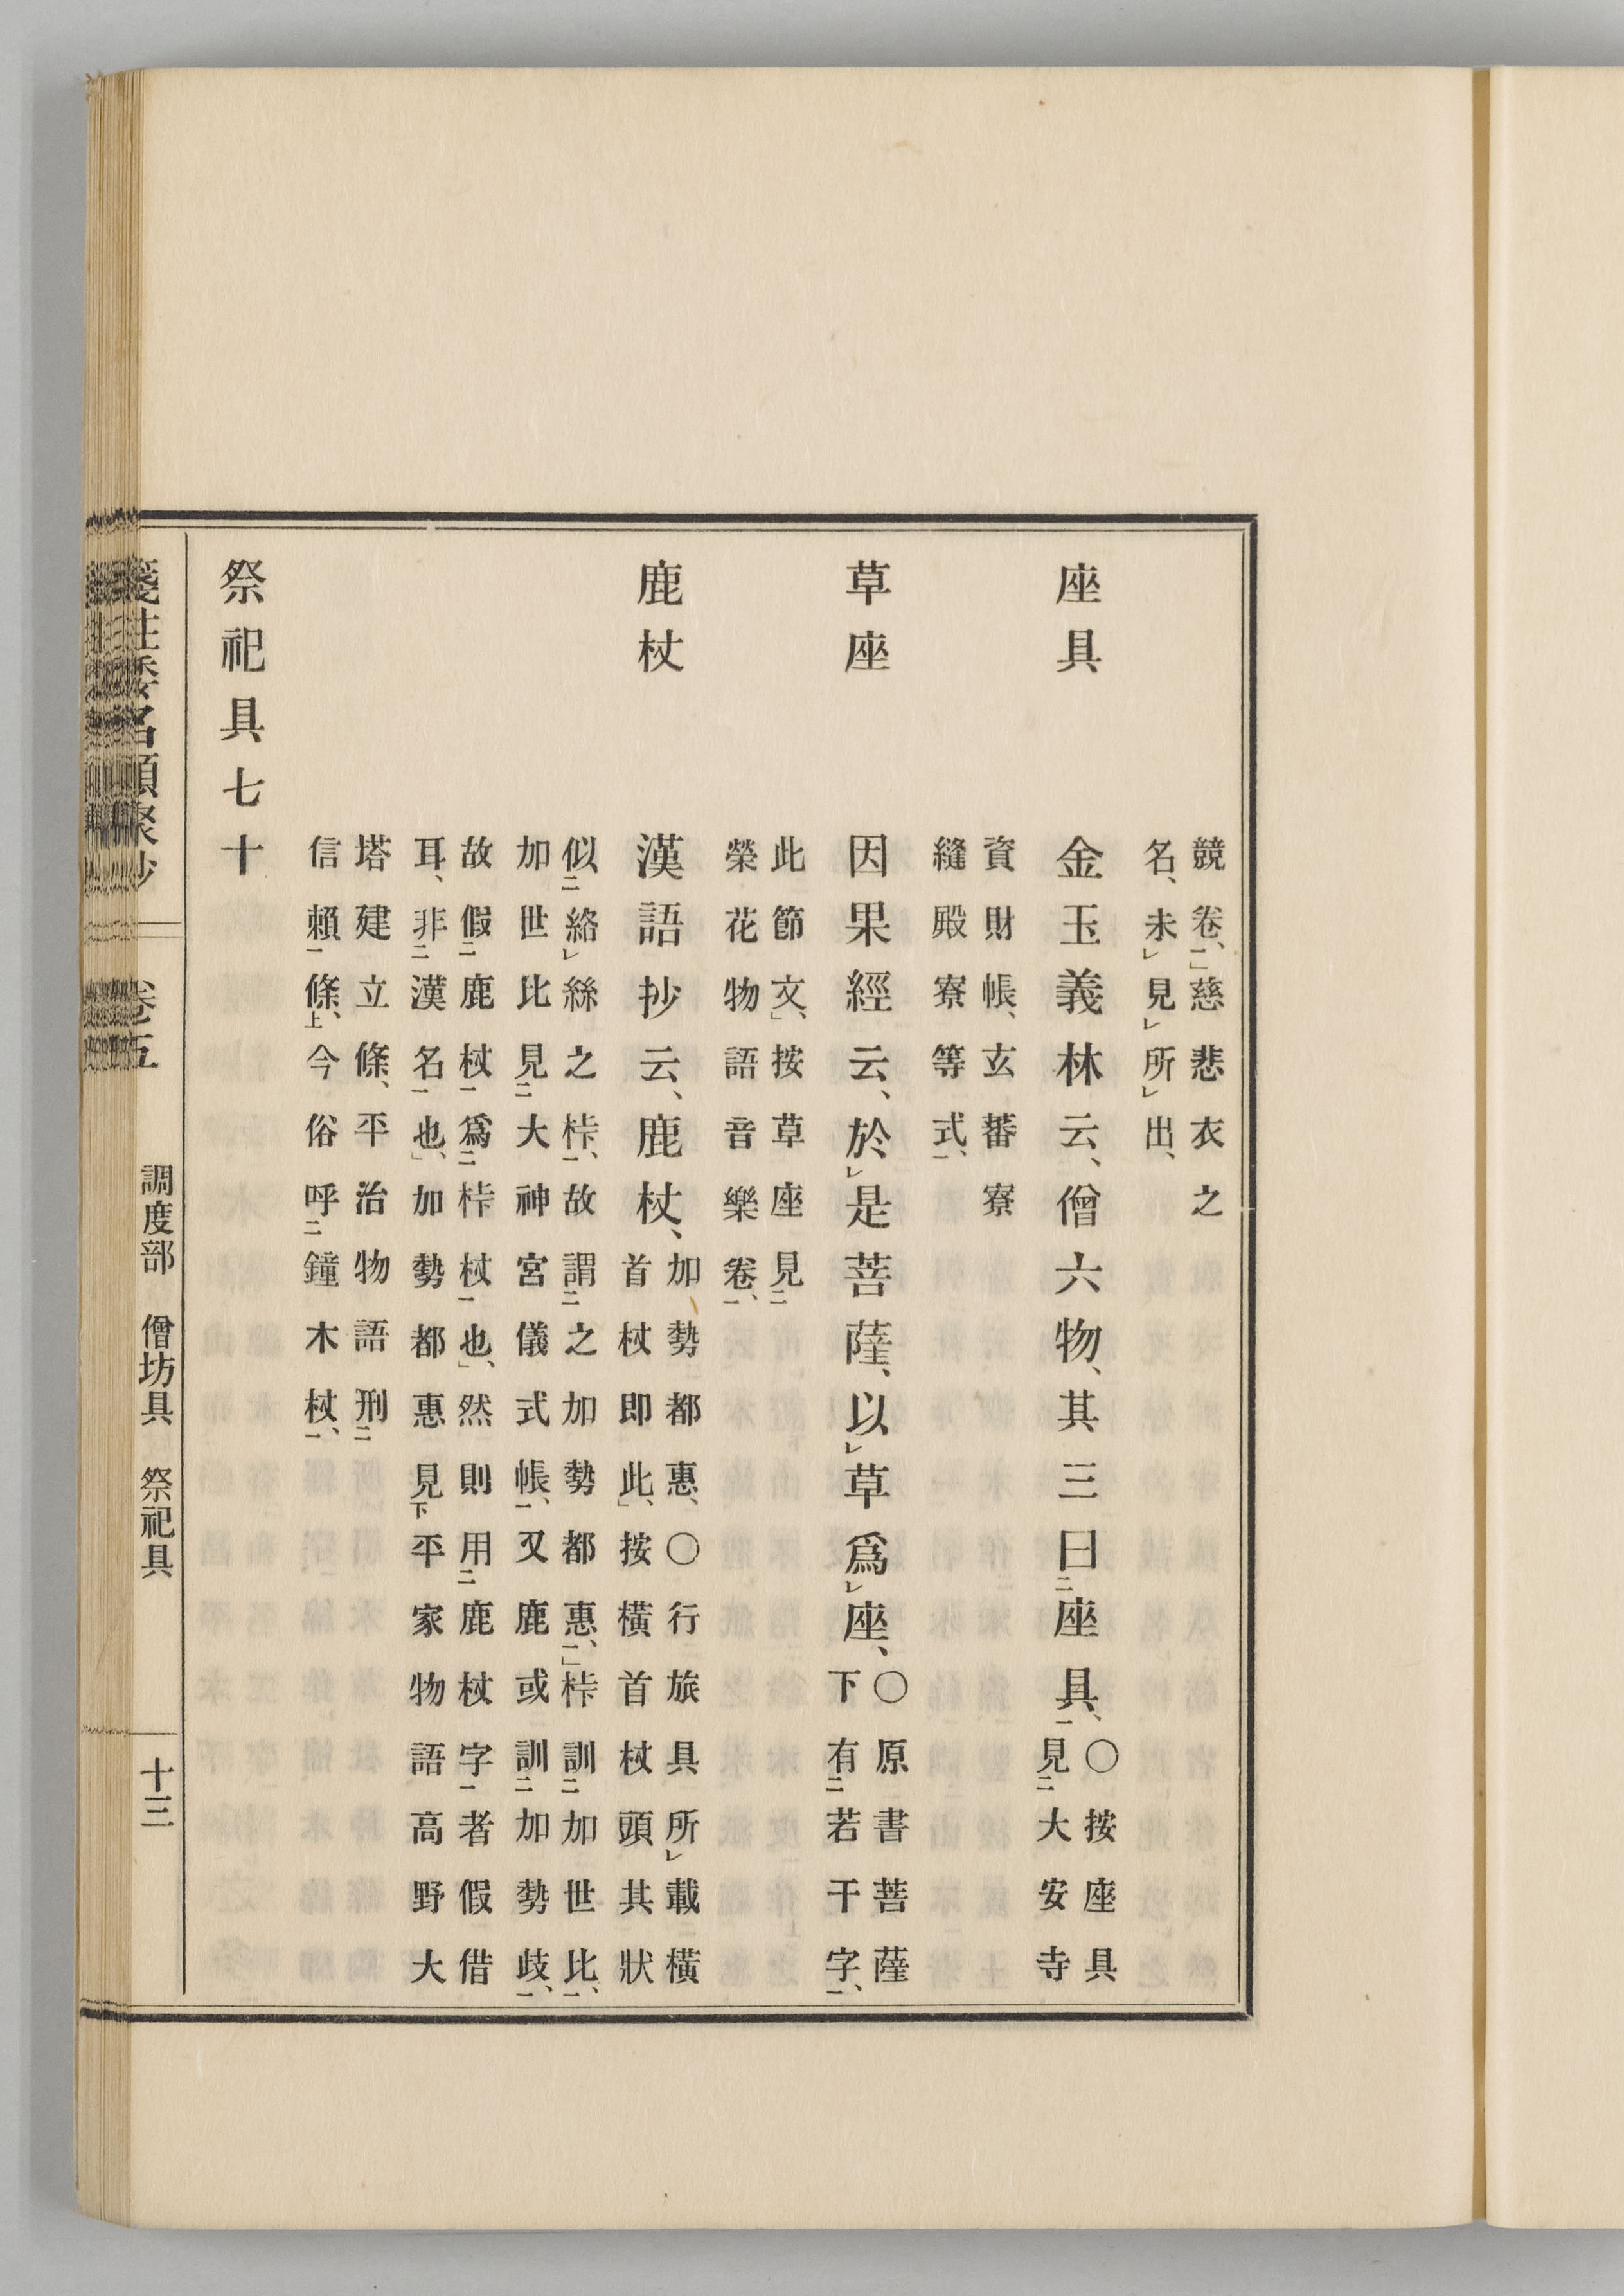 競卷、慈悲衣之
名、未見所出、
座具　金玉義林云、僧六物、其三曰座具、
○按座具
見大安寺
資財帳、玄蕃寮
縫殿寮等式、
草座　因果經云、於是菩薩、以草爲座、
○原書菩薩
下有若干字、
此節文、按草座見
榮花物語音樂卷、
鹿杖　漢語抄云、鹿杖、
加勢都惠、○行旅具所載橫
首杖即此、按橫首杖頭其狀
似絡絲之桛、故謂之加勢都惠、桛訓加世比、
加世比見大神宮儀式帳、又鹿或訓加勢歧、
故假鹿杖爲桛杖也、然則用鹿杖字者假借
耳、非漢名也、加勢都惠見平家物語高野大
塔建立條、平治物語刑
信賴條、今俗呼鐘木杖、
祭祀具七十
箋注倭名類聚抄　卷五　調度部　僧坊具　祭祀具　十三